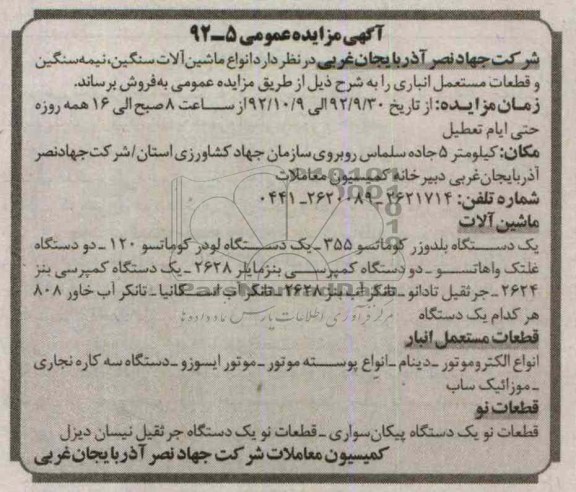 آگهی مزایده عمومی ۵ـ۹۲
شرکت جهاد نصر آذربایجان غربی در نظر دارد انواع ماشین آلات سنگین، نیمه سنگین
و قطعات مستعمل انباری را به شرح ذیل از طریق مزایده عمومی به فروش برساند.
زمان مزایده: از تاریخ ۹۲/۹/۳۰ الی ۹۲/۱۰/۹ از ساعت ۸ صبح الی ۱۶ همه روزه
حتی ایام تعطیل
مکان: کیلومتر ۵ جاده سلماس روبروی سازمان جهاد کشاورزی استان/ شرکت جهاد نصر
آذربایجان غربی دبیرخانه کمیسیون معاملات
شماره تلفن: ۲۶۲۱۷۱۴ ـ ۲۶۲۰۰۸۹ـ ۰۴۴۱
ماشین آلات
یک دستگاه بلدوزر کوماتسو ۳۵۵ ـ یک دستگاه لودر کوماتسو ۱۲۰ ـ دو دستگاه
غلتک واهاتسو ـ دو دستگاه کمپرسی بنز مایلر ۲۶۲۸ ـ یک دستگاه کمپرسی بنز
۲۶۲۴ ـ جرثقیل تادانو ـ تانکر آب بنز ۲۶۲۸ ـ تانکر آب اسکانیا ـ تانکر آب خاور ۸۰۸
هر کدام یک دستگاه
قطعات مستعمل انبار
انواع الکتروموتور ـ دینام ـ انواع پوسته موتور ـ موتور ایسوزو ـ دستگاه سه کاره نجاری
ـ موزائیک ساب
قطعات نو
قطعات نو یک دستگاه پیکان سواری ـ قطعات نو یک دستگاه جرثقیل نیسان دیزل
کمیسیون معاملات شرکت جهاد نصر آذربایجان غربی